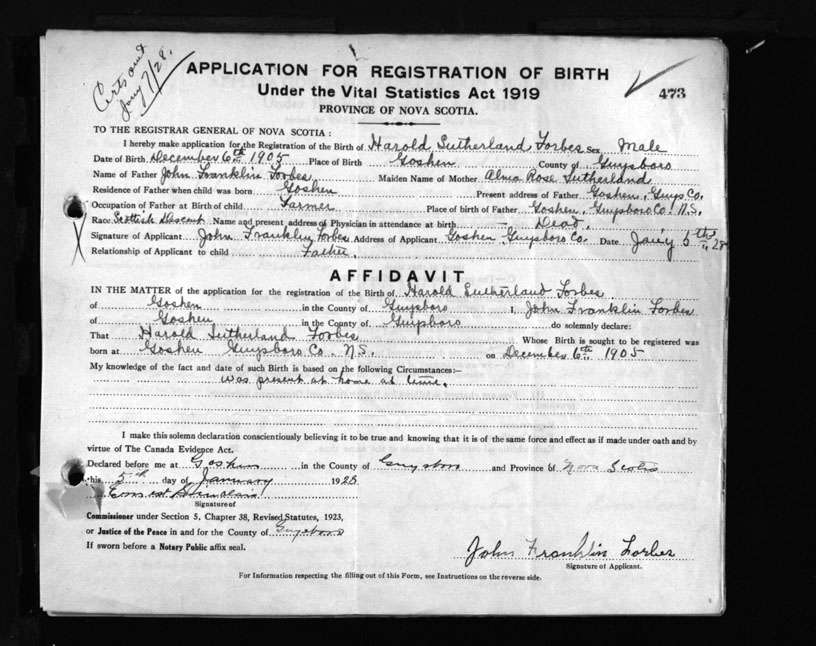 Certs out
Jany 7/28.
APPLICATION FOR REGISTRATION OF BIRTH
Under the Vital Statistics Act 1919
473
PROVINCE OF NOVA SCOTIA.
TO THE REGISTRAR GENERAL OF NOVA SCOTIA :
I hereby make application for the Registration of the Birth of Harold Sutherland Forbes Sex Male
Date of Birth December 6th 1905 Place of Birth Goshen County of Guysboro
Name of Father John Franklin Forbes Maiden Name of Mother Alma Rose Sutherland
Residence of Father when child was born Goshen Present address of Father Goshen, Guys Co.
Occupation of Father at Birth of child Farmer Place of birth of Father Goshen, Guysboro Co. N.S.
Race Scottish Descent Name and present address of Physician in attendance at birth Dead.
Signature of Applicant John Franklin Forbes Address of Applicant Goshen Guysboro Co. Date Jan'y 5th 28
Relationship of Applicant to child Father.
AFFIDAVIT
IN THE MATTER of the application for the registration of the Birth of Harold Sutherland Forbes
of Goshen in the County of Guysboro I, John Franklin Forbes
of Goshen in the County of Guysboro do solemnly declare:
That Harold Sutherland Forbes Whose Birth is sought to be registered was
born at Goshen Guysboro Co. N.S. on December 6th 1905
My knowledge of the fact and date of such Birth is based on the following Circumstances:—
was present at home at time.
I make this solemn declaration conscientiously believing it to be true and knowing that it is of the same force and effect as if made under oath and by
virtue of The Canada Evidence Act.
Declared before me at Goshen in the County of Guysboro and Province of Nova Scotia
this 5th day of January 1928
Signature of
Commissioner under Section 5, Chapter 38, Revised Statutes, 1923,
or Justice of the Peace in and for the County of Guysboro
If sworn before a Notary Public affix seal.
John Franklin Forbes
Signature of Applicant.
For Information respecting the filling out of this Form, see Instructions on the reverse side.